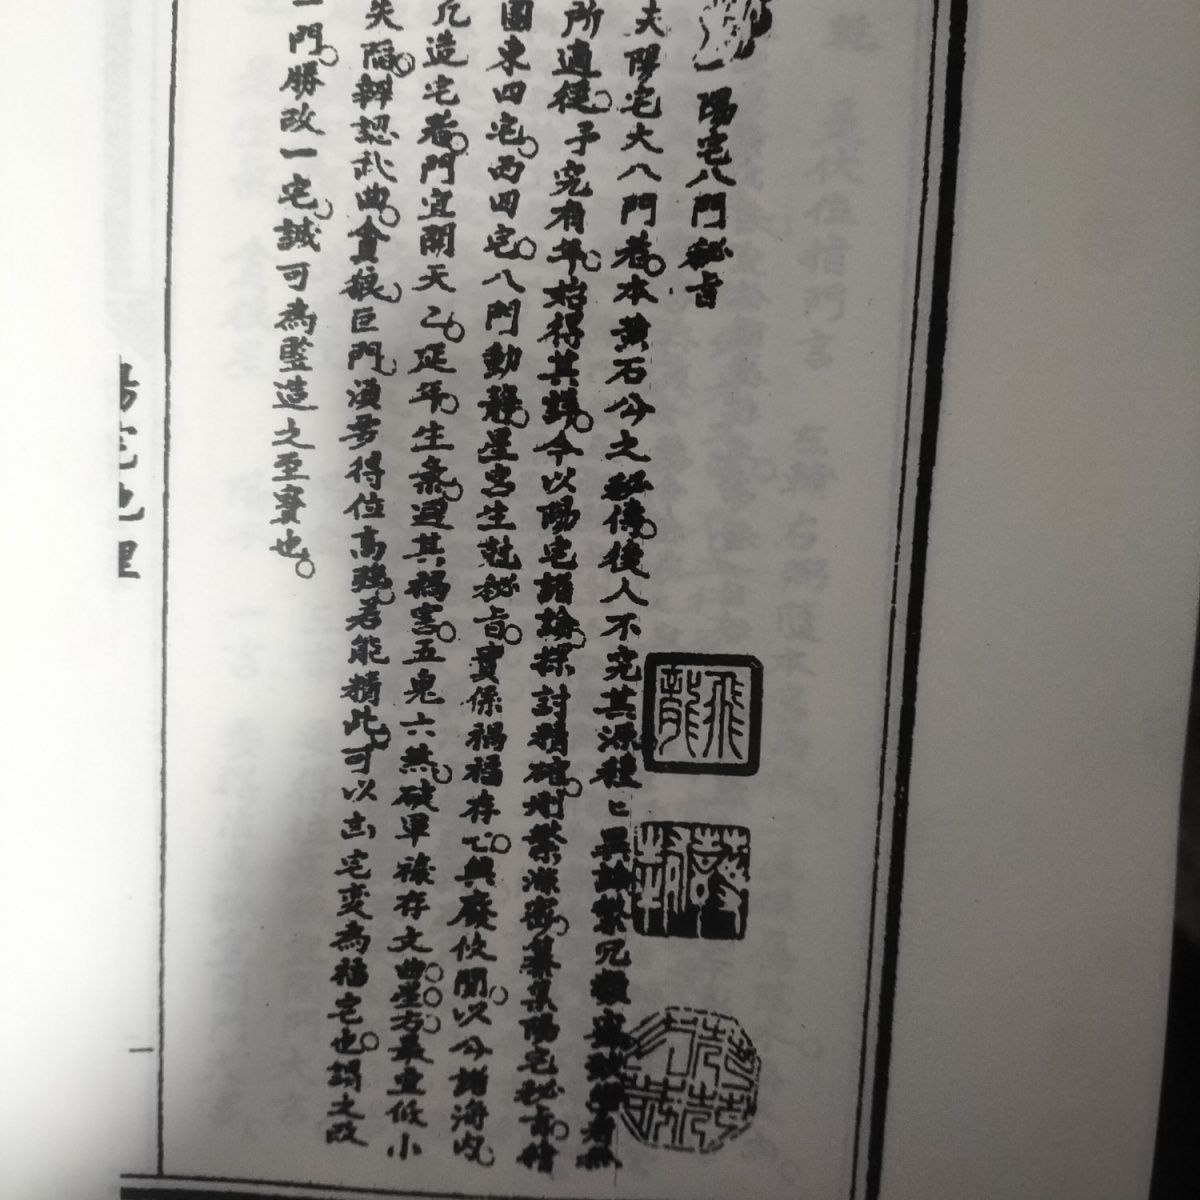 陽宅八門秘旨
夫陽宅大八門者。本黃石公之秘傳。後人不究其源。種匕異論繁冗。數家。致學者無
所適從。予究有年。始得其訣。今以陽宅諸論。探討精確。刪繁滌蕪。纂集陽宅秘旨。繪
圖東四宅。西四宅。八門動靜。星宮生尅秘旨。實係禍福存亡。興廢攸關。以公諸海內。
凡造宅者。門宜開天乙。延年。生氣。避其禍害。五鬼。六煞。破軍祿存文曲。星。方。最宜低小
失陷。辨認武曲。貪狼。巨門。須要得位高強。若能精此。可以凶宅變為福宅也。謂之改
一門。勝改一宅。誠可為監造之至寶也。
飛龍
陽宅地理
一